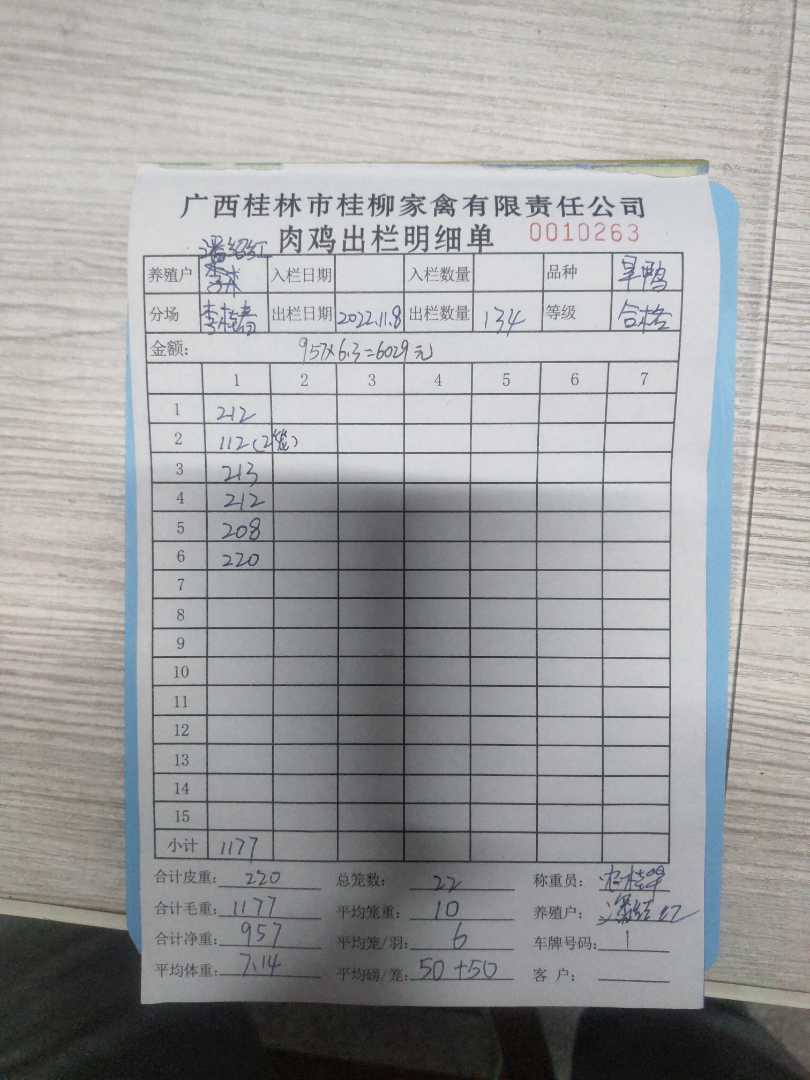 广西桂林市桂柳家禽有限责任公司
肉鸡出栏明细单 0010263
潘绍红
养殖户 入栏日期 入栏数量 品种 旱鸭
分场 李桂青 出栏日期 2022.11.8 出栏数量 134 等级 合格
金额: 957×6.3=6029元
1 2 3 4 5 6 7
1 212
2 112(2笼)
3 213
4 212
5 208
6 220
7
8
9
10
11
12
13
14
15
小计 1177
合计皮重: 220 总笼数: 22 称重员:
合计毛重: 1177 平均笼重: 10 养殖户: 潘绍红
合计净重: 957 平均笼/羽: 6 车牌号码: 1
平均体重: 7.14 平均磅/笼: 50+50 客户: